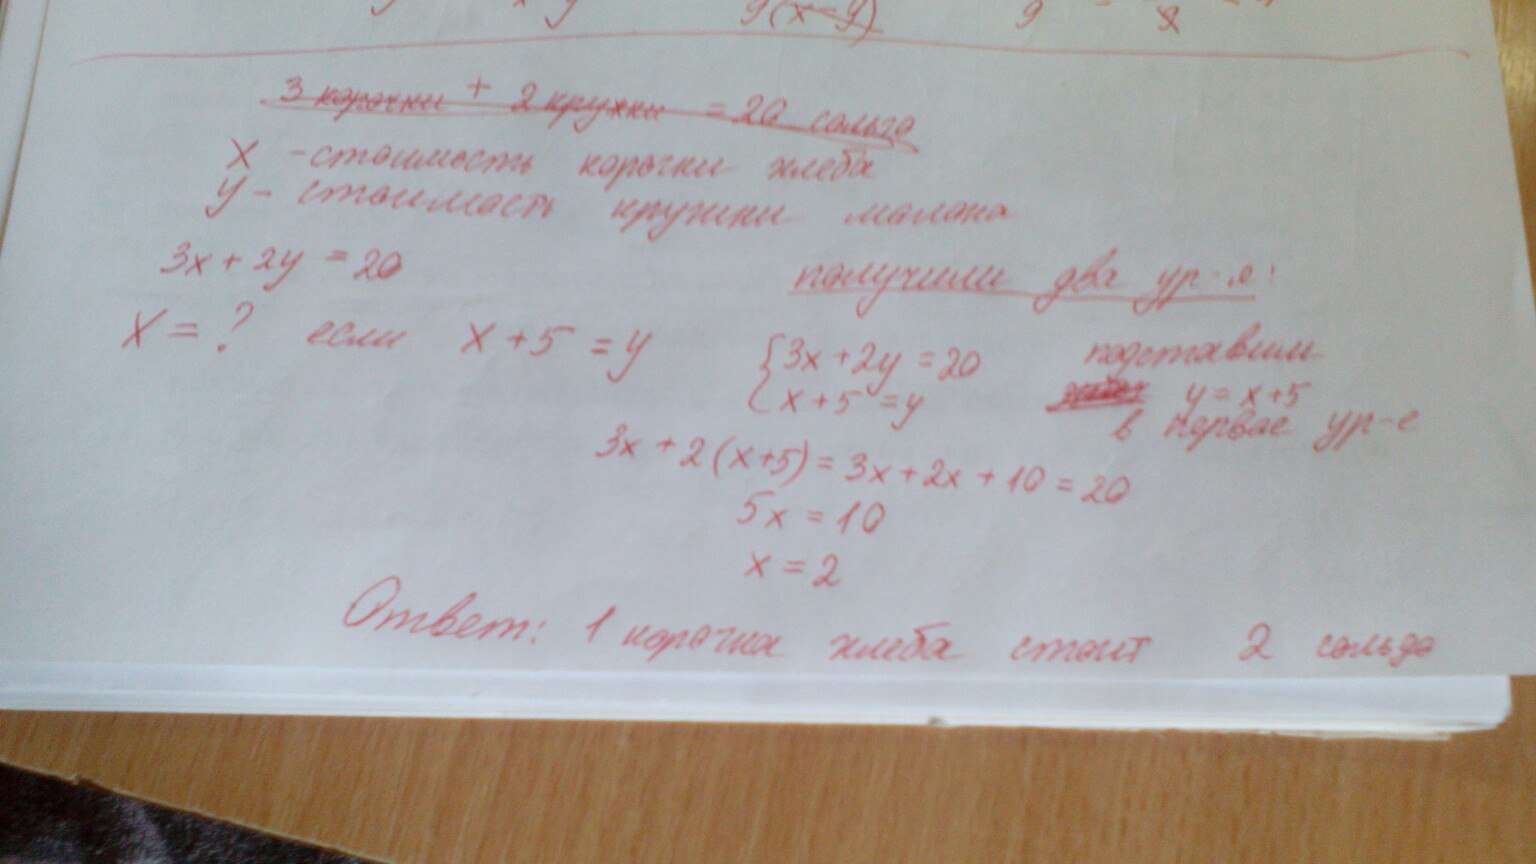 9(x-y)
3 корочки + 2 кружки = 20 сольдо
x - стоимость корочки хлеба
y - стоимость кружки молока
3x + 2y = 20
x = ? если x + 5 = y
получили два ур-я:
3x + 2y = 20
x + 5 = y
подставим
y = x + 5
в первое ур-е
3x + 2(x+5) = 3x + 2x + 10 = 20
5x = 10
x = 2
Ответ: 1 корочка хлеба стоит 2 сольдо